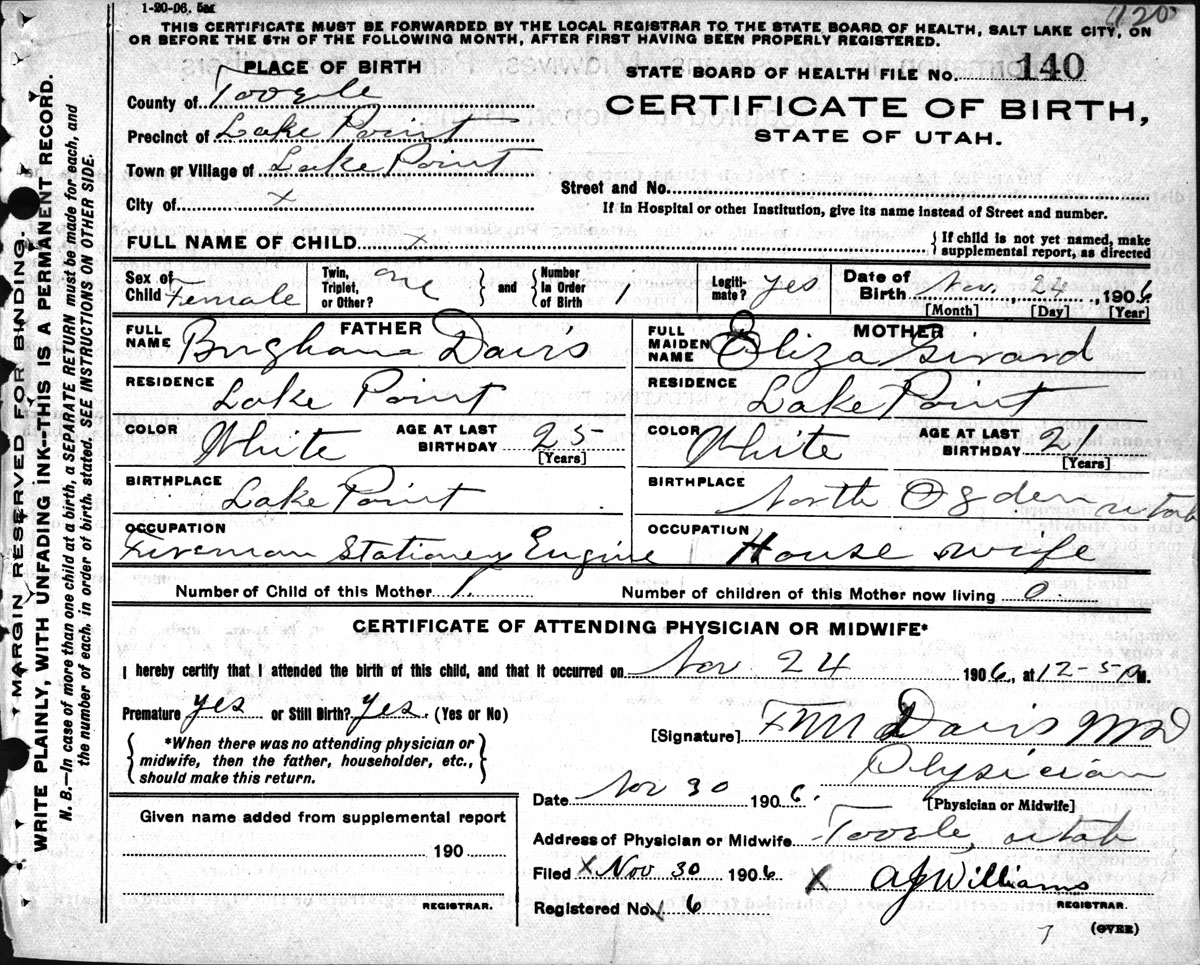 1-20-06. 5m
120
THIS CERTIFICATE MUST BE FORWARDED BY THE LOCAL REGISTRAR TO THE STATE BOARD OF HEALTH, SALT LAKE CITY, ON
OR BEFORE THE 5TH OF THE FOLLOWING MONTH, AFTER FIRST HAVING BEEN PROPERLY REGISTERED.
MARGIN RESERVED FOR BINDING.
WRITE PLAINLY, WITH UNFADING INK--THIS IS A PERMANENT RECORD.
N. B.—In case of more than one child at a birth, a SEPARATE RETURN must be made for each, and
the number of each, in order of birth, stated. SEE INSTRUCTIONS ON OTHER SIDE.
PLACE OF BIRTH
County of Tooele
Precinct of Lake Point
Town or Village of Lake Point
City of x
STATE BOARD OF HEALTH FILE No. 140
CERTIFICATE OF BIRTH,
STATE OF UTAH.
Street and No.
If in Hospital or other Institution, give its name instead of Street and number.
FULL NAME OF CHILD x { If child is not yet named, make
supplemental report, as directed
Sex of Child Female
Twin, Triplet, or Other? one } and { Number in Order of Birth 1
Legitimate? yes
Date of Birth Nov. 24, 1906
[Month] [Day] [Year]
FATHER
FULL NAME Brighana Davis
RESIDENCE Lake Point
COLOR White AGE AT LAST BIRTHDAY 25
[Years]
BIRTHPLACE Lake Point
OCCUPATION Fireman Stationery Engine
MOTHER
FULL MAIDEN NAME Eliza Girard
RESIDENCE Lake Point
COLOR White AGE AT LAST BIRTHDAY 21
[Years]
BIRTHPLACE North Ogden utah
OCCUPATION House wife
Number of Child of this Mother 1. Number of children of this Mother now living 0
CERTIFICATE OF ATTENDING PHYSICIAN OR MIDWIFE*
I hereby certify that I attended the birth of this child, and that it occurred on Nov 24 1906, at 12-5 P M.
Premature yes or Still Birth? yes. (Yes or No)
*When there was no attending physician or
midwife, then the father, householder, etc.,
should make this return.
[Signature] F M Davis MD
Physician
[Physician or Midwife]
Date Nov 30 1906.
Address of Physician or Midwife Tooele, utah
Filed x Nov 30 1906 x A J Williams
REGISTRAR.
Registered No. 6
(OVER)
Given name added from supplemental report
190
REGISTRAR.